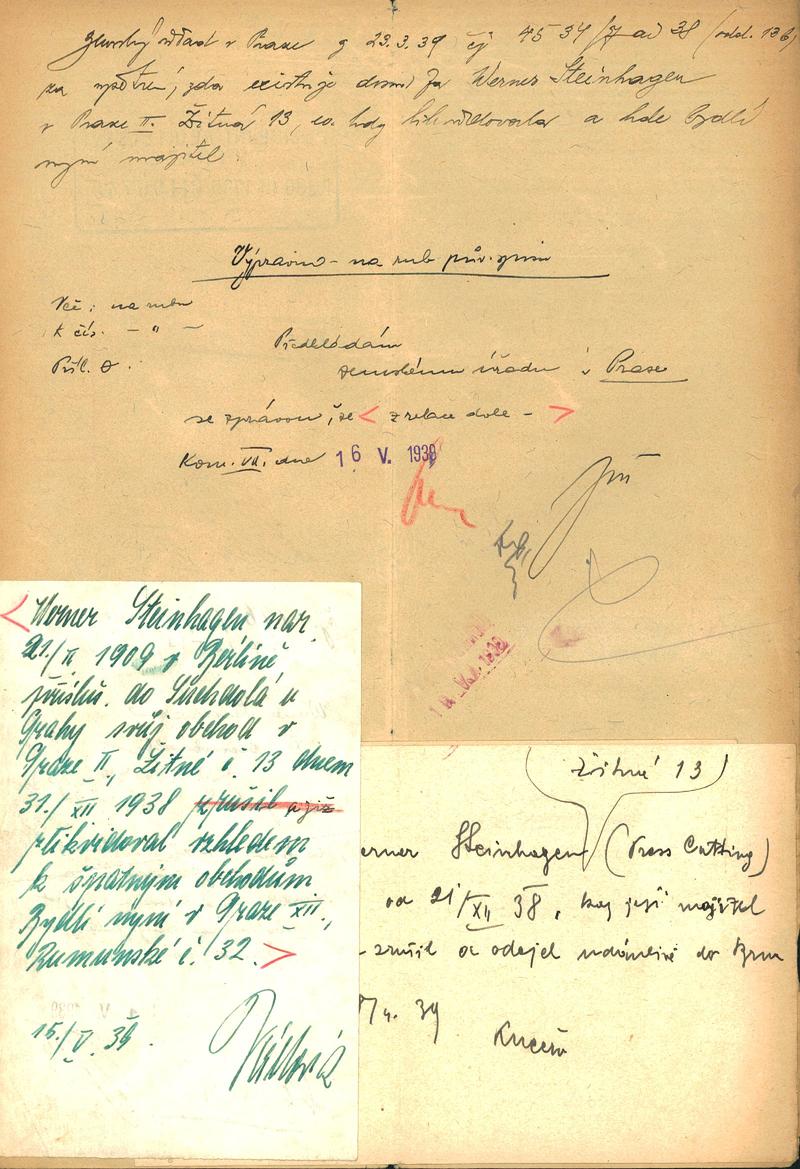 Zemský úřad v Praze z 23.3.39 čj 4534/ ai 38 (odd. 13b)
za zda existuje Fa Werner Steinhagen
v Praze II. Žitná 13, ev. kdy likvidovala a kde bydlí
nyní majitel
Výpravno - na rub pův. spisu
Věc: na rubu
K čís. - " -
Příl. 0.
Předkládám
zemskému úřadu v Praze
se zprávou, že < z relace dole - >
Kom. VII. dne 16 V. 1939
< Werner Steinhagen nar.
21./II. 1909 v Berlíně,
přísluš. do Suchdola u
Prahy svůj obchod v
Praze II., Žitné č. 13 dnem
31./XII 1938 zrušil a již
zlikvidoval vzhledem
k špatným obchodům
Bydlí nyní v Praze XII.,
Rumunské č. 32. >
15./V. 39.
Žitná 13
erner Steinhagen (Press Cutting)
od 21/XII 38, kdy její majitel
zrušil a odejel údánlivě do Brna
7/4. 39
Kučera